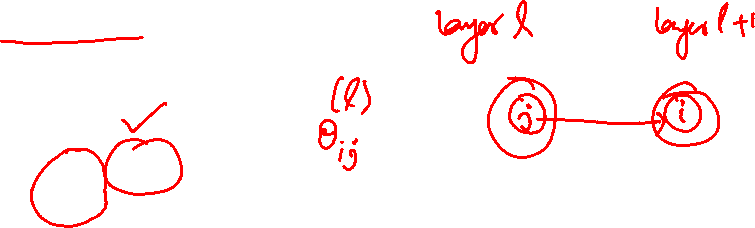 layer l layer l+1
(l)
θij
j i